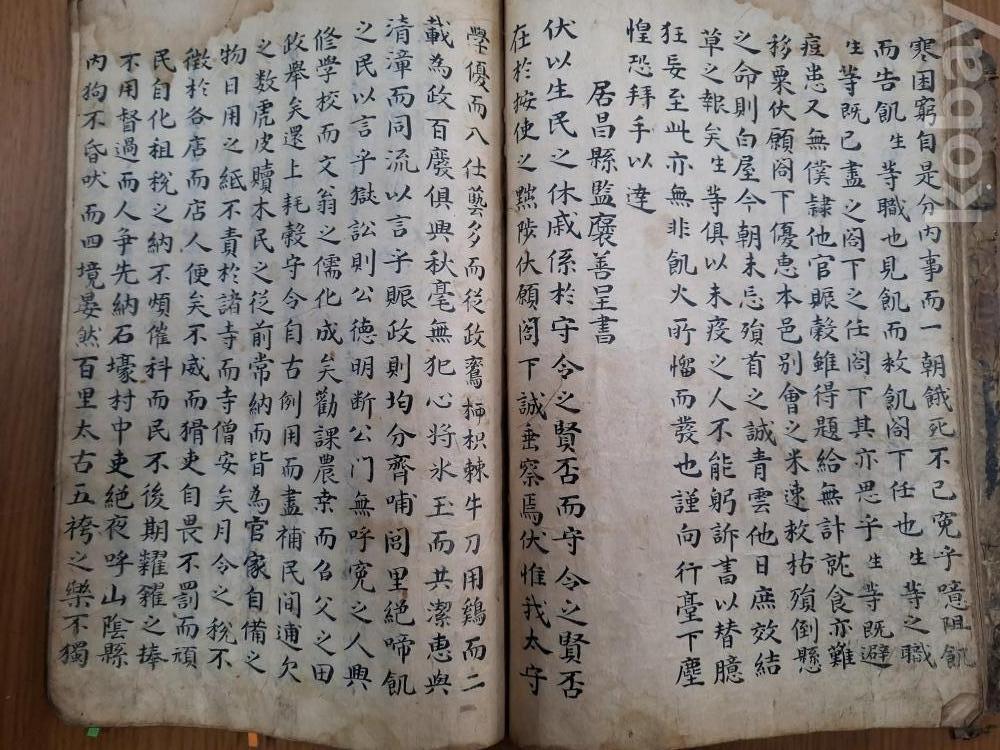 寒困窮自是分內事而一朝餓死不己寃乎噫阻飢
而告飢生等職也見飢而救飢閤下任也生等之職
生等既已盡之閤下之任閤下其亦思乎生等既避
疫患又無僕隷他官賑穀雖得題給無計就食亦難
移粟伏願閤下優惠本邑別會之米速救枯殞倒懸
之命則白屋今朝未忘殞首之誠青雲他日庶效結
草之報矣生等俱以未疫之人不能躬訴書以替臆
狂妄至此亦無非飢火所惱而發也謹向行臺下塵
惶恐拜手以達
居昌縣監襃善呈書
伏以生民之休戚係於守令之賢否而守令之賢否
在於按使之黜陟伏願閤下誠垂察焉伏惟我太守
學優而入仕藝多而從政鸞捿枳棘牛刀用鷄而二
載為政百廢俱興秋毫無犯心將氷玉而共潔惠與
清漳而同流以言乎賑政則均分齊哺閭里絕啼飢
之民以言乎獄訟則公德明断公门無呼寃之人興
修學校而文翁之儒化成矣勸課農桒而召父之田
政舉矣還上耗穀守令自古例用而盡補民间逋欠
之数虎皮贖木民之從前常納而皆為官家自備之
物日用之紙不責於諸寺而寺僧安矣月令之稅不
徵於各店而店人便矣不威而猾吏自畏不罰而頑
民自化租稅之納不煩催科而民不後期糶糴之捧
不用督過而人争先納石壕村中吏絕夜呼山陰縣
内狗不昏吠而四境晏然百里太古五袴之樂不獨